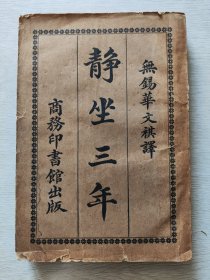 無錫華文祺譯
靜坐三年
商務印書館出版